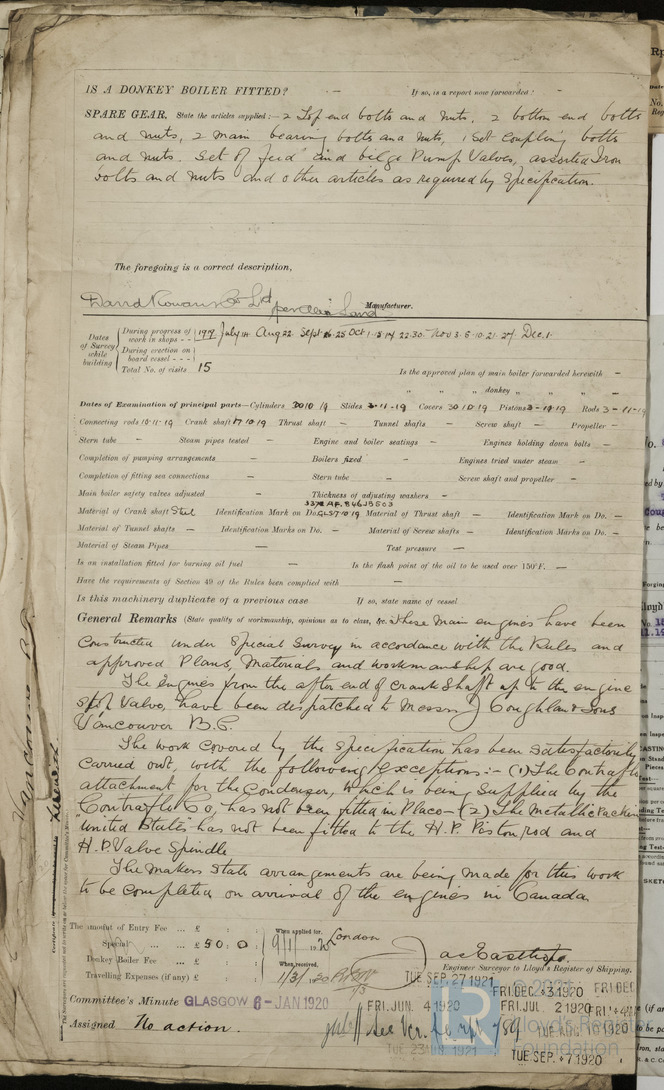 IS A DONKEY BOILER FITTED? - If so, is a report now forwarded? -
SPARE GEAR. State the articles supplied:- 2 Top end bolts and nuts, 2 bottom end bolts
and nuts, 2 main bearing bolts and nuts, 1 set coupling bolts
and nuts. Set of feed and bilge Pump Valves, assorted Iron
bolts and nuts and other articles as required by Specification.
The foregoing is a correct description,
David Rowan & Co Ltd Manufacturer.
Dates of Survey while building
During progress of work in shops - - 1919 July 14 Aug 22 Sept 16. 25 Oct 22. 30. Nov 3. 5. 10. 21. 27. Dec. 1.
During erection on board vessel - - -
Total No. of visits 15
Is the approved plan of main boiler forwarded herewith -
" " " donkey " " " -
Dates of Examination of principal parts—Cylinders 30 10 19 Slides 3-11-19 Covers 30 10 19 Pistons 3-10-19 Rods 3-11-19
Connecting rods 10-11-19 Crank shaft 17 10 19 Thrust shaft - Tunnel shafts - Screw shaft - Propeller -
Stern tube - Steam pipes tested - Engine and boiler seatings - Engines holding down bolts -
Completion of pumping arrangements - Boilers fixed - Engines tried under steam -
Completion of fitting sea connections - Stern tube - Screw shaft and propeller -
Main boiler safety valves adjusted - Thickness of adjusting washers -
Material of Crank shaft Steel Identification Mark on Do. Material of Thrust shaft - Identification Mark on Do. -
Material of Tunnel shafts - Identification Marks on Do. - Material of Screw shafts - Identification Marks on Do. -
Material of Steam Pipes - Test pressure -
Is an installation fitted for burning oil fuel - Is the flash point of the oil to be used over 150°F. -
Have the requirements of Section 49 of the Rules been complied with -
Is this machinery duplicate of a previous case If so, state name of vessel
General Remarks (State quality of workmanship, opinions as to class, &c. These Main engines have been
constructed under Special Survey in accordance with the Rules and
approved Plans, Materials and workmanship are good.
The Engines from the after end of crank shaft up to the engine
stop Valve, have been despatched to Messrs J Coughlan & Sons
Vancouver B.C.
The work covered by the specification has been satisfactorily
carried out, with the following exceptions:- (1) The Contraflo
attachment for the Condenser, which is being supplied by the
Contraflo Co, has not been fitted in Place - (2) The Metallic Packing
"United States" has not been fitted to the H.P. Piston rod and
H.P. Valve Spindle
The Makers state arrangements are being made for this work
to be completed on arrival of the engines in Canada
The amount of Entry Fee ... £ : :
Special ... £ 50 : 0 :
Donkey Boiler Fee ... £ : :
Travelling Expenses (if any) £ : :
When applied for, 9/1/1920 London
When received, 1/3/20
Engineer Surveyor to Lloyd's Register of Shipping.
TUE. SEP. 27 1921
FRI. DEC. 3 1920
FRI. DEC
Committee's Minute GLASGOW 6-JAN 1920
FRI. JUN. 4 1920
FRI. JUL. 2 1920
Assigned No action.
TUE. AUG. 1920
TUE. 23 1921
TUE. SEP. 7 1920
LR
Lloyd's Register
Foundation